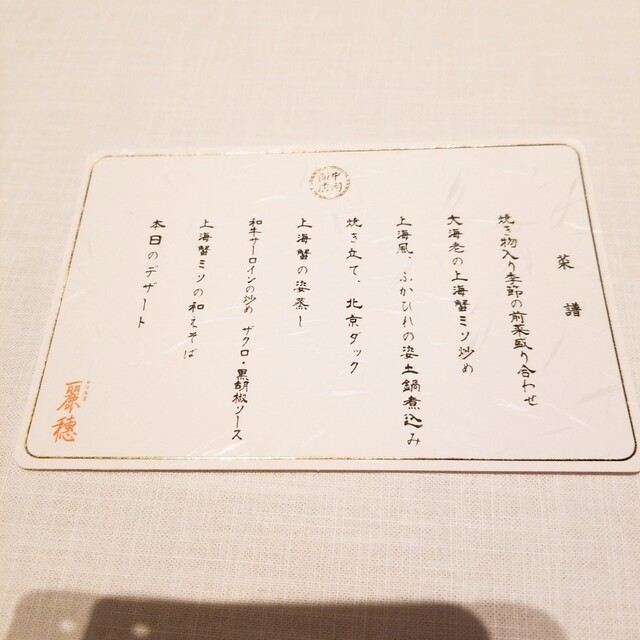 菜譜
焼き物入り季節の前菜盛り合わせ
大海老の上海蟹ミソ炒め
上海風、ふかひれの姿土鍋煮込み
焼き立て、北京ダック
上海蟹の姿蒸し
和牛サーロインの炒め ザクロ・黒胡椒ソース
上海蟹ミソの和えそば
本日のデザート
麗穂